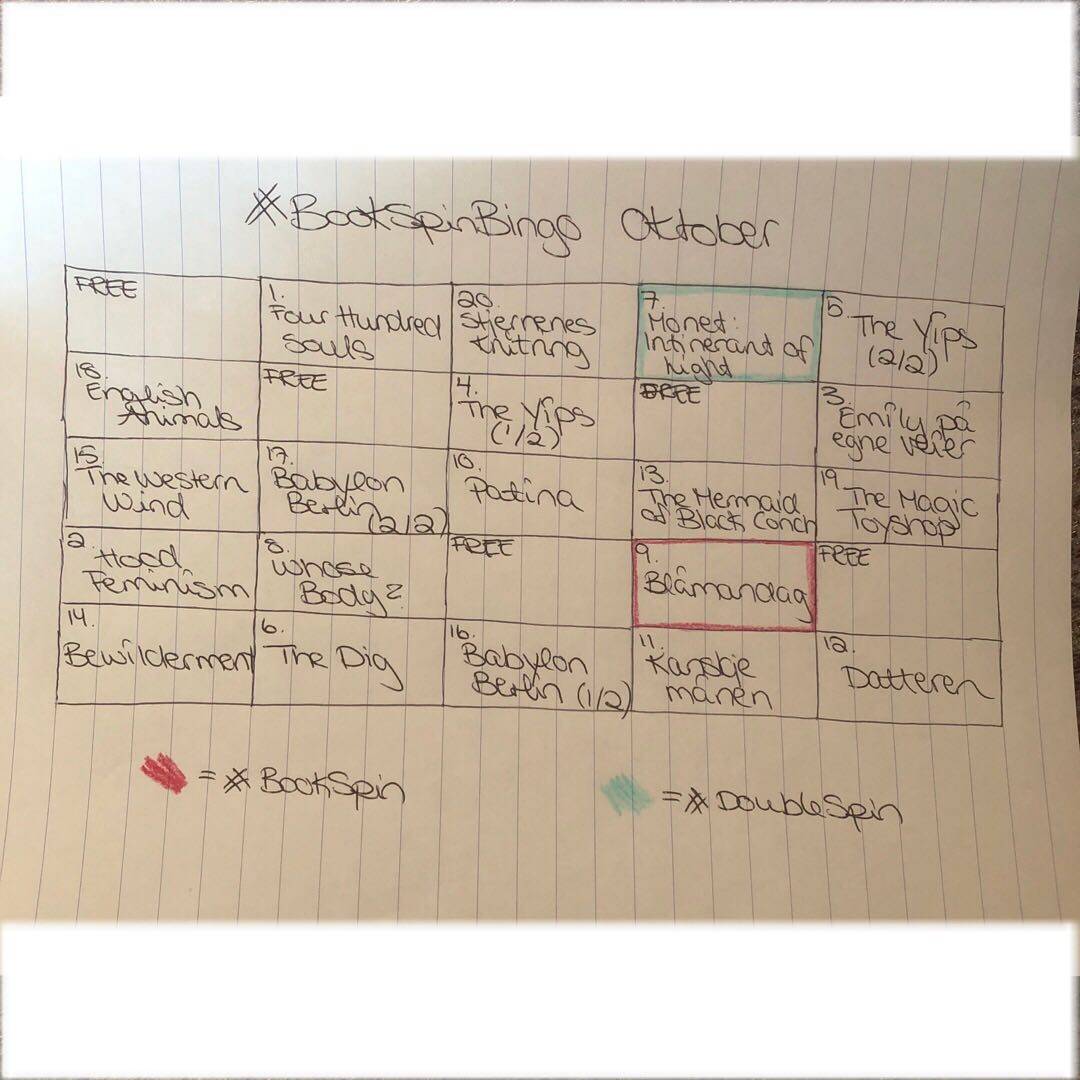 #BookSpinBingo Oktober
FREE
1.
Four Hundred
Souls
20.
Stjernenes
knitring
7.
Monet:
Intinerant of
light
5.
The Yips
(2/2)
18.
English
Animals
FREE
4.
The Yips
(1/2)
FREE
3.
Emily på
egne veier
15.
The Western
Wind
17.
Babylon
Berlin
(2/2)
10.
Patina
13.
The Mermaid
of Black Conch
19.
The Magic
Toyshop
2.
Hood
Feminism
8.
Whose
Body?
FREE
9.
Blåmandag
FREE
14.
Bewilderment
6.
The Dig
16.
Babylon
Berlin (1/2)
11.
Kanskje
månen
12.
Datteren
= #BookSpin
= #DoubleSpin